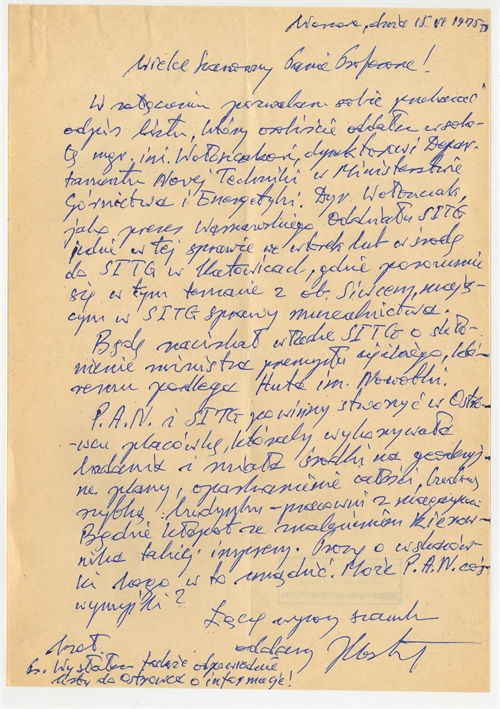 Warszawa, dnia 15 VI 1975 r
Wielce Szanowny Panie Profesorze!
W załączeniu pozwalam sobie przekazać
odpis listu, który osobiście oddałem w sobo-
tę mgr. inż. Wołosiukowi, dyrektorowi Depar-
tamentu Nowej Techniki w Ministerstwie
Górnictwa i Energetyki. Dyr.
jako prezes Warszawskiego Oddziału SITG
jedzie w tej sprawie we wtorek lub w środę
do SITG w Katowicach, gdzie porozumie
się w tym temacie z ob. mają-
cym w SITG sprawy muzealnictwa.
Będę naciskał władze SITG o skło-
nienie ministra przemysłu ciężkiego, któ-
remu podlega Huta im. Nowotki.
P.A.N. i SITG powinny stworzyć w Ostro-
wcu placówkę, któraby wykonywała
badania i miała środki na geodezyj-
ne plany, opłotowanie całości,
szybką budynku - pracowni z magazynem.
Będzie kłopot ze znalezieniem kierow-
nika takiej imprezy. Proszę o wskazów-
ki kogo w to Może P.A.N. coś
wymyśli?
Łączę wyrazy szacunku
oddany
Wysłałem także odpowiednie
listy do Ostrowca o informację!